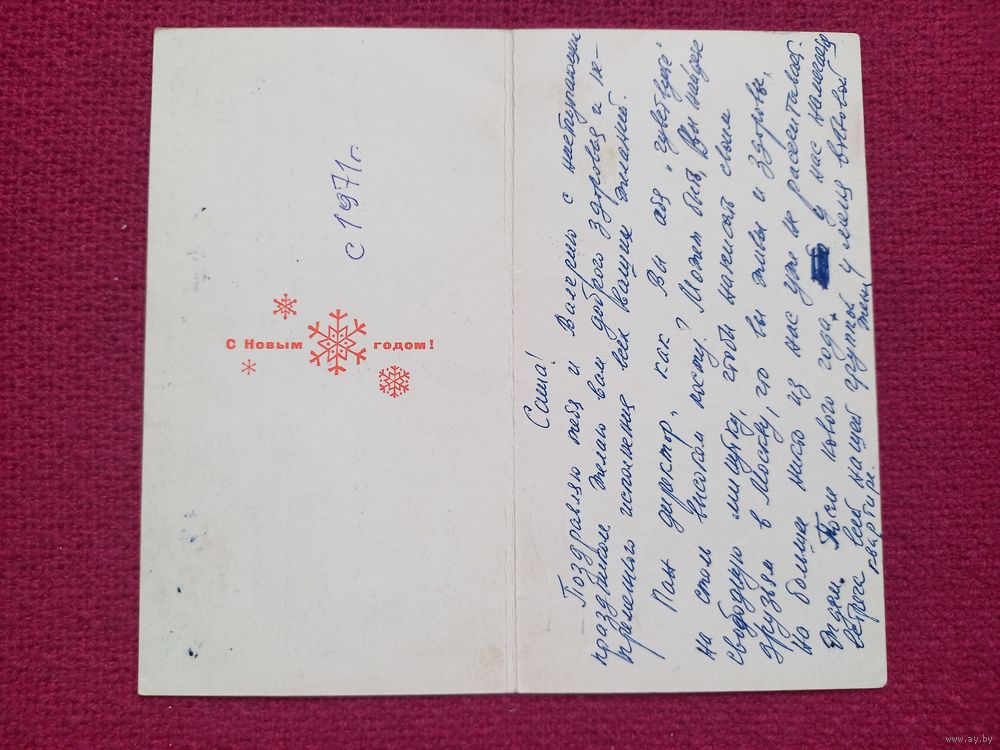 С Новым годом!
С 1971 г.
Саша!
Поздравляю тебя и Валерию с наступающим
праздником желаю вам доброго здоровья и не-
пременного исполнения всех ваших желаний.
Пан директор, как Вы себя "чувствуете"
на столь высоком посту? Может быть, Вы найдёте
свободную минутку, чтобы написать своим
друзьям в Москву, что вы живы и здоровы,
но больше никто из нас уже не рассчитывает.
ждем. После нового года, у нас намечается
встреча всей нашей группой у меня в новой
квартире.
www.ay.by